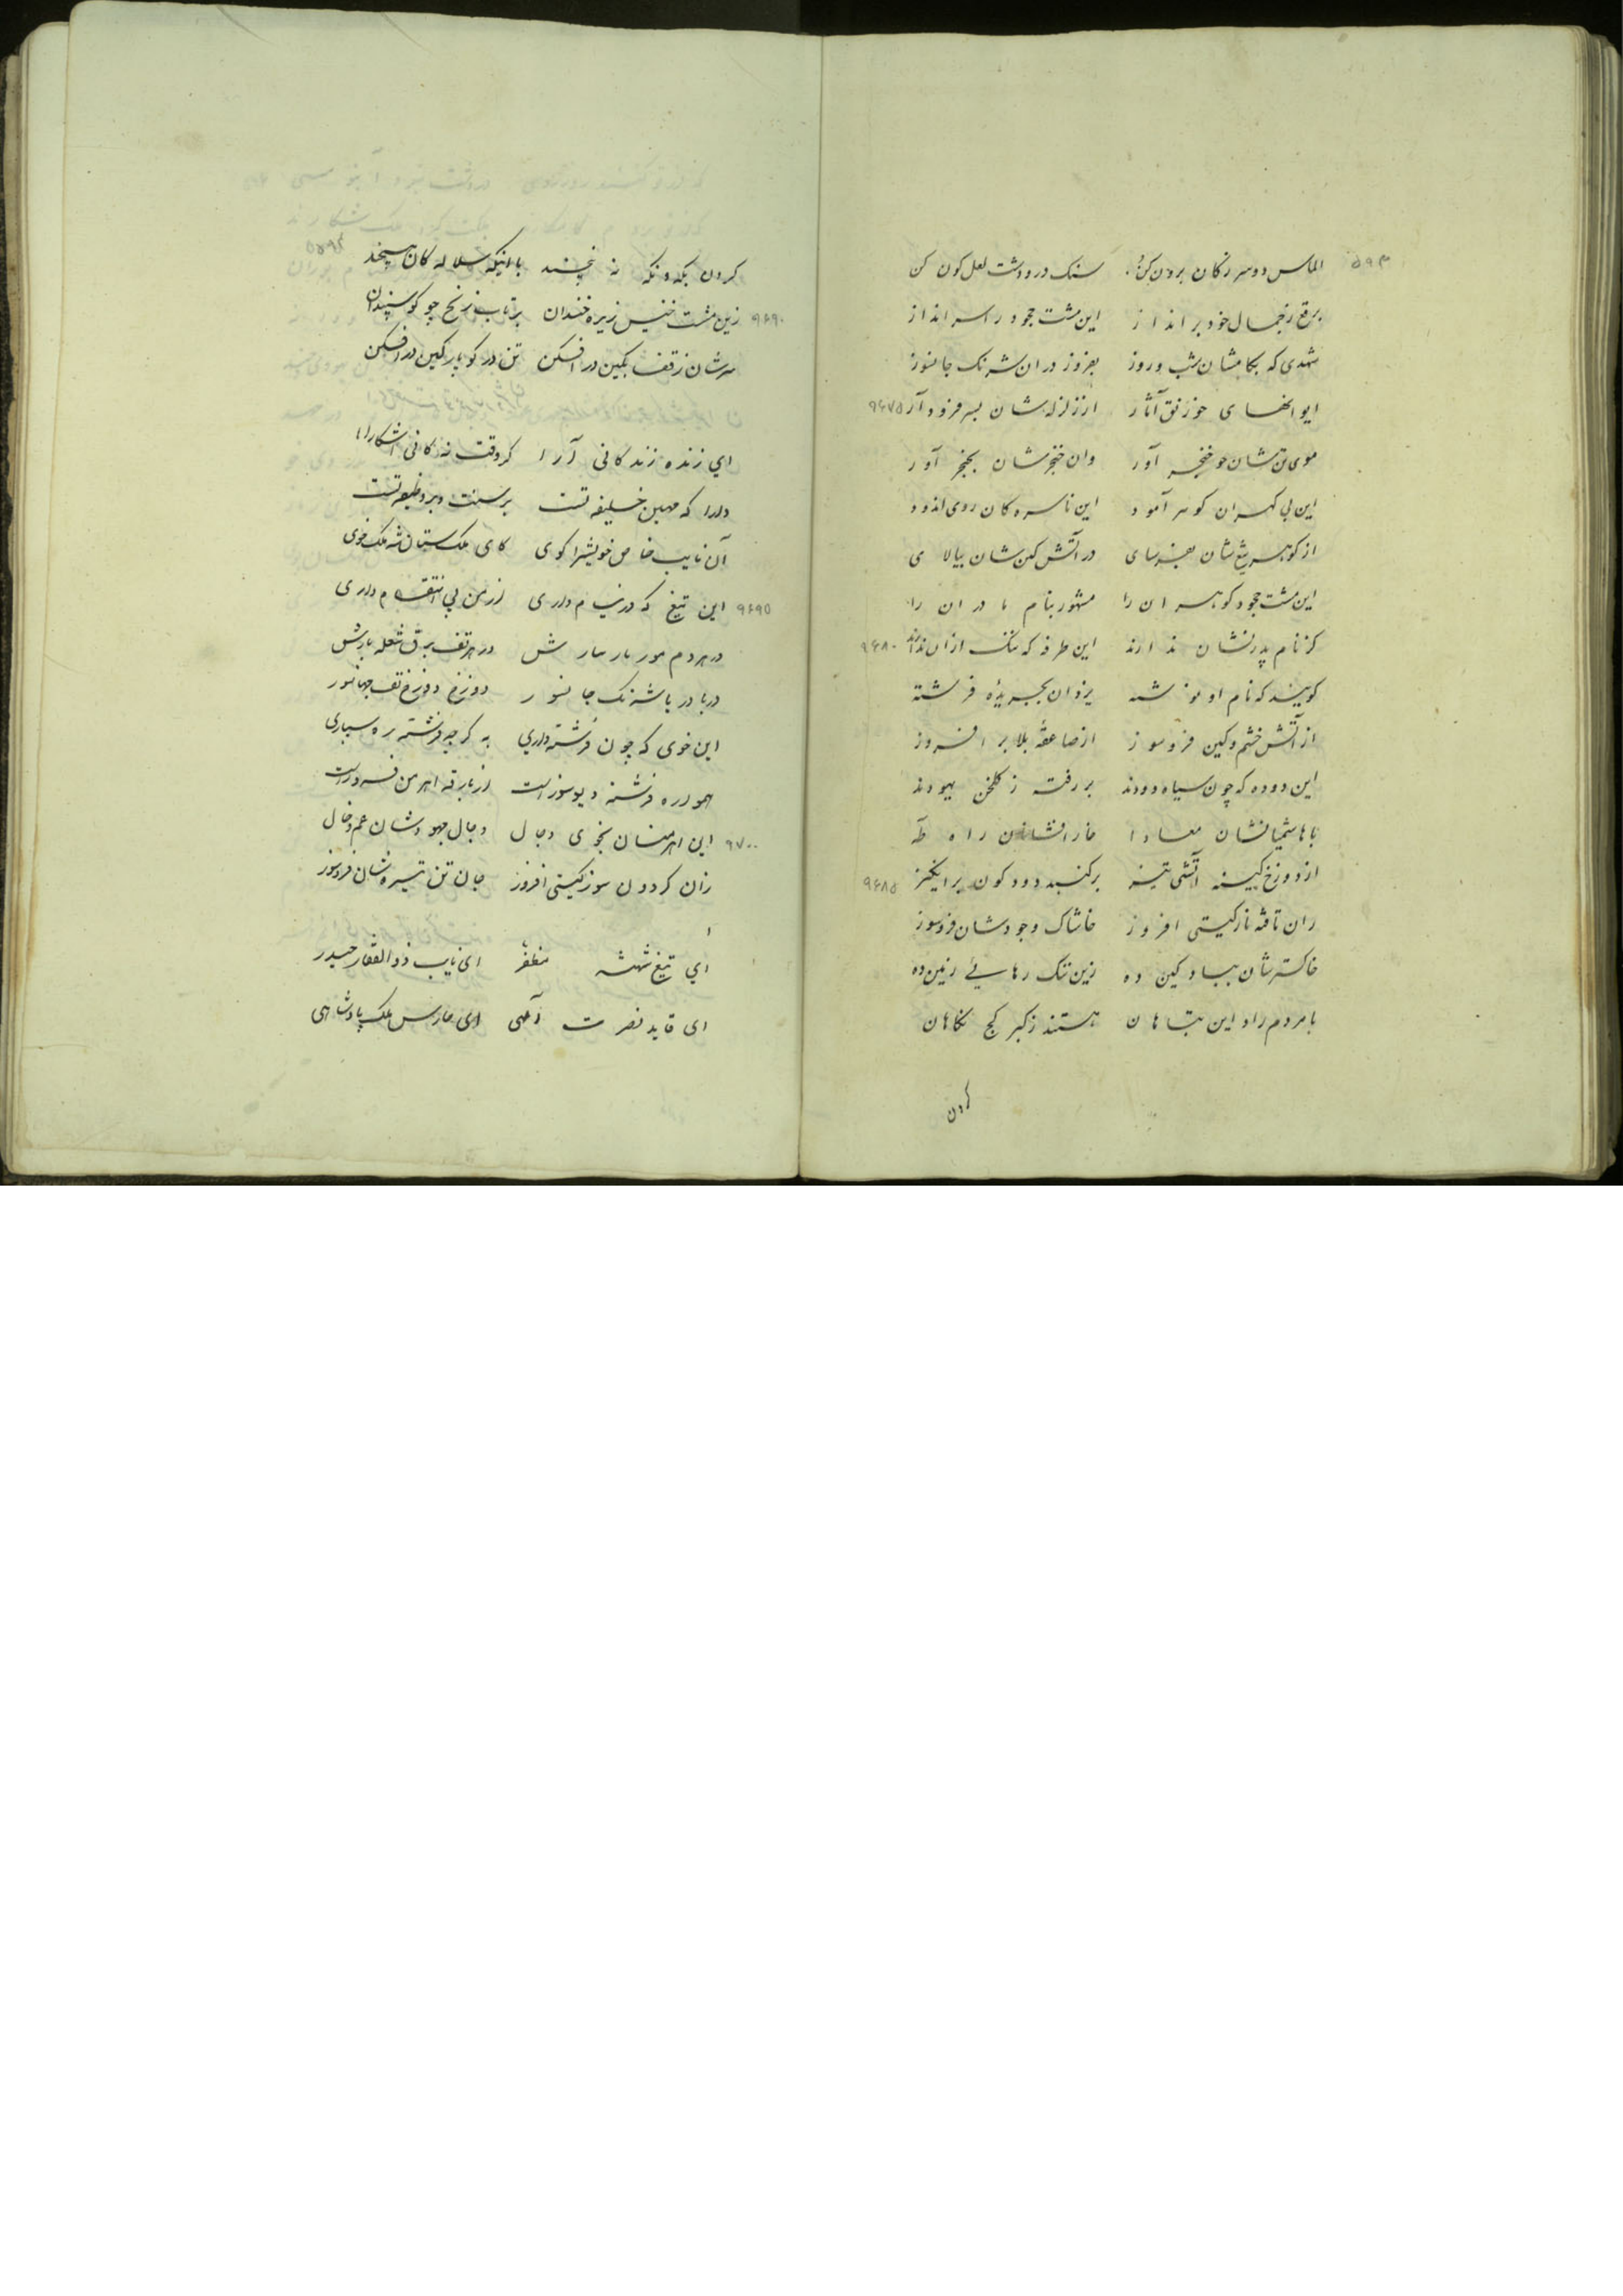 ۵۹۳
الماس دو سر ز کان برون کن سنک در و دشت لعل کون کن
برقع ز جمال خود بر انداز این مشت جحود را سر انداز
شهدی که بکامشان شب و روز بفروز در ان شرنک جانسوز
ایوانهای خورنق آثار از زلزله شان بسر فرود آر ۹۶۷۵
موی تن شان چو خنجر آور وان خنجر شان بحنجر آور
این بی کهران کوهر آمود این ناسره کان روی اندود
از کوهر تیغ شان بفرسای در آتش کین شان بپالای
این مشت جحود کوهران را مشهور بنام مادران را
کز نام پدر نشان ندارند این طرفه که ننک ازان ندارند ۹۶۸۰
کویند که نام او نوشته یزدان بجریدهٔ فرشته
از آتش خشم و کین فروسوز از صاعقهٔ بلا بر افروز
این دوده که چون سیاه دودند بر رفته ز کلخن یهودند
با هاشمیانشان معادا خار افشانان راه طه
از دوزخ کینه آتشی تیز بر کنبد دود کون بر انکیز ۹۶۸۵
زان تافته نار کیتی افروز خاشاک وجودشان فروسوز
خاکسترشان بباد کین ده زین ننک رهایی زمین ده
با مردم راد این تباهان هستند ز کبر کج نکاهان
کردن
کردن بکه و نکه نه پیچند با اینکه سلاله کان هیچند
۹۶۹۰ زین مشت خسیس زیره خندان بر تاب زنخ چو کوسپندان
سرشان ز قفا بکین در افکن تن در کو پارکین در افکن
ای زنده زندکانی آرا کز وقت نه کانی اشکارا
دارا که مهین خلیفه تست بر سنت و بر وظیفه تست
آن نایب خاص خویشرا کوی کای ملک ستان شه ملک خوی
۹۶۹۵ این تیغ که در نیام داری از من پی انتقام داری
در هر دم مور بار مارش در هر تف برق شعله بارش
دریا دریا شرنک جانسوز دوزخ دوزخ تف جهانسوز
این خوی که چون فرشته داری به کر چه فرشته ره سپاری
همواره فرشته دیو سوز است از بارقه اهرمن فروز است
۹۷۰۰ این اهرمنان بخوی دجال دجال جهودشان عم و خال
زان کردون سوز کیتی افروز جان تن تیره شان فروسوز
ای تیغ شهنشه مظفر ای نایب ذوالفقار حیدر
ای قاید نصرت آلهی ای حارس ملک پادشاهی